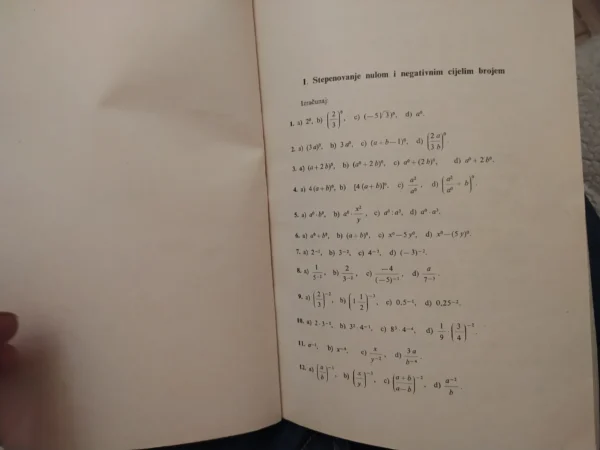 I. Stepenovanje nulom i negativnim cijelim brojem
Izračunaj:
1. a) 2⁰, b) (2/3)⁰, c) (−5√3)⁰, d) a⁰.
2. a) (3a)⁰, b) 3a⁰, c) (a+b−1)⁰, d) (2a/3b)⁰
3. a) (a+2b)⁰, b) (a⁰+2b)⁰, c) a⁰+(2b)⁰, d) a⁰+2b⁰.
4. a) 4(a+b)⁰, b) [4(a+b)]⁰, c)
5. a) a⁰·b⁰, b) a⁰·x²/y, c) a⁰:a³, d) a⁰·a³.
6. a) a⁰+b⁰, b) (a+b)⁰, c) x⁰−5y⁰, d) x⁰−(5y)⁰.
7. a) 2⁻¹, b) 3⁻², c) 4⁻³, d) (−3)⁻².
8. a) 1/5⁻², b) 2/3⁻², c) −4/(−5)⁻², d) a/7⁻².
9. a) (2/3)⁻³, b) (1 1/2)⁻³, c) 0,5⁻², d) 0,25⁻².
10. a) 2·3⁻², b) 3²·4⁻², c) 8²·4⁻⁴, d) 1/9·(3/4)⁻²
11. a⁻¹, b) x⁻⁴, c) x/y⁻², d) 3a/b⁻⁴.
12. a) b) c) d) a⁻²/b.